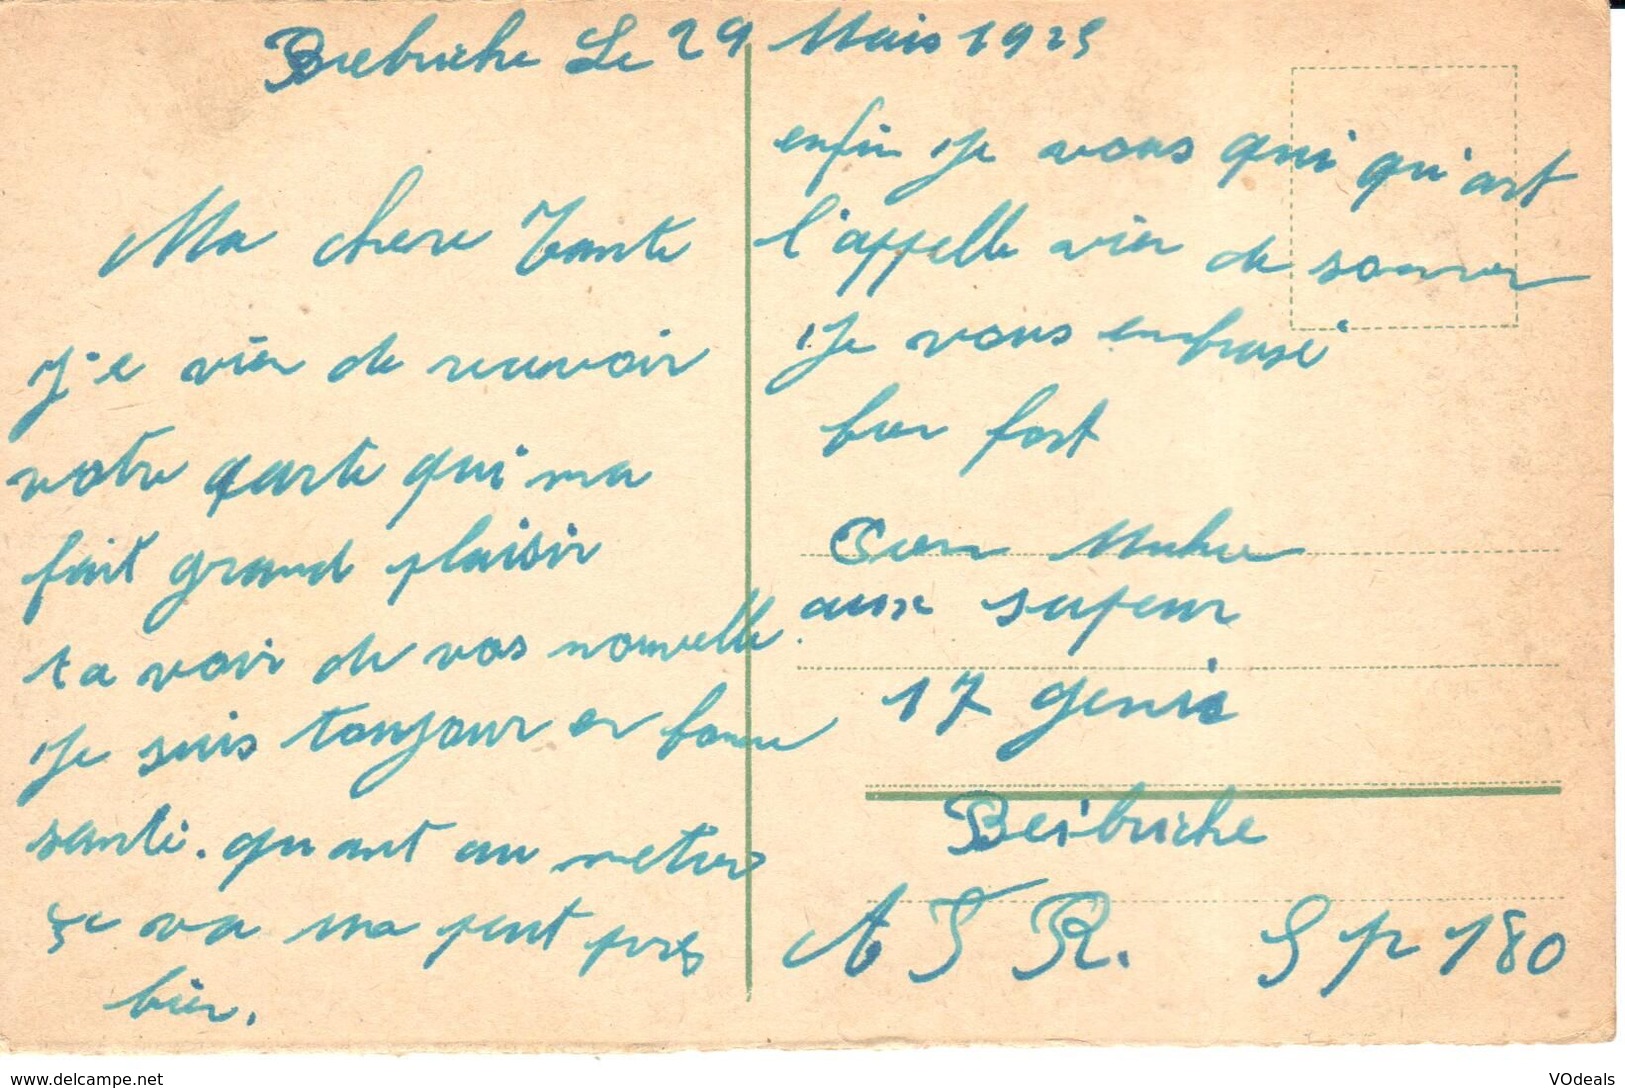 Biebriche Le 29 Mais 1925
Ma chere Tante
Je vien de recevoir
votre qarte qui ma
fait grand plaisir
ta voir de vos nouvelle
Je suis toujour en bonne
santé. quant au metier
ça va ma peut près
bien.
enfin Je vous qui qu'art
l'appelle vien de sonner
Je vous enbrase
bien fort
aux sapeur
17 genie
Beibriche
A F R. S p 180
www.delcampe.net
VOdeals